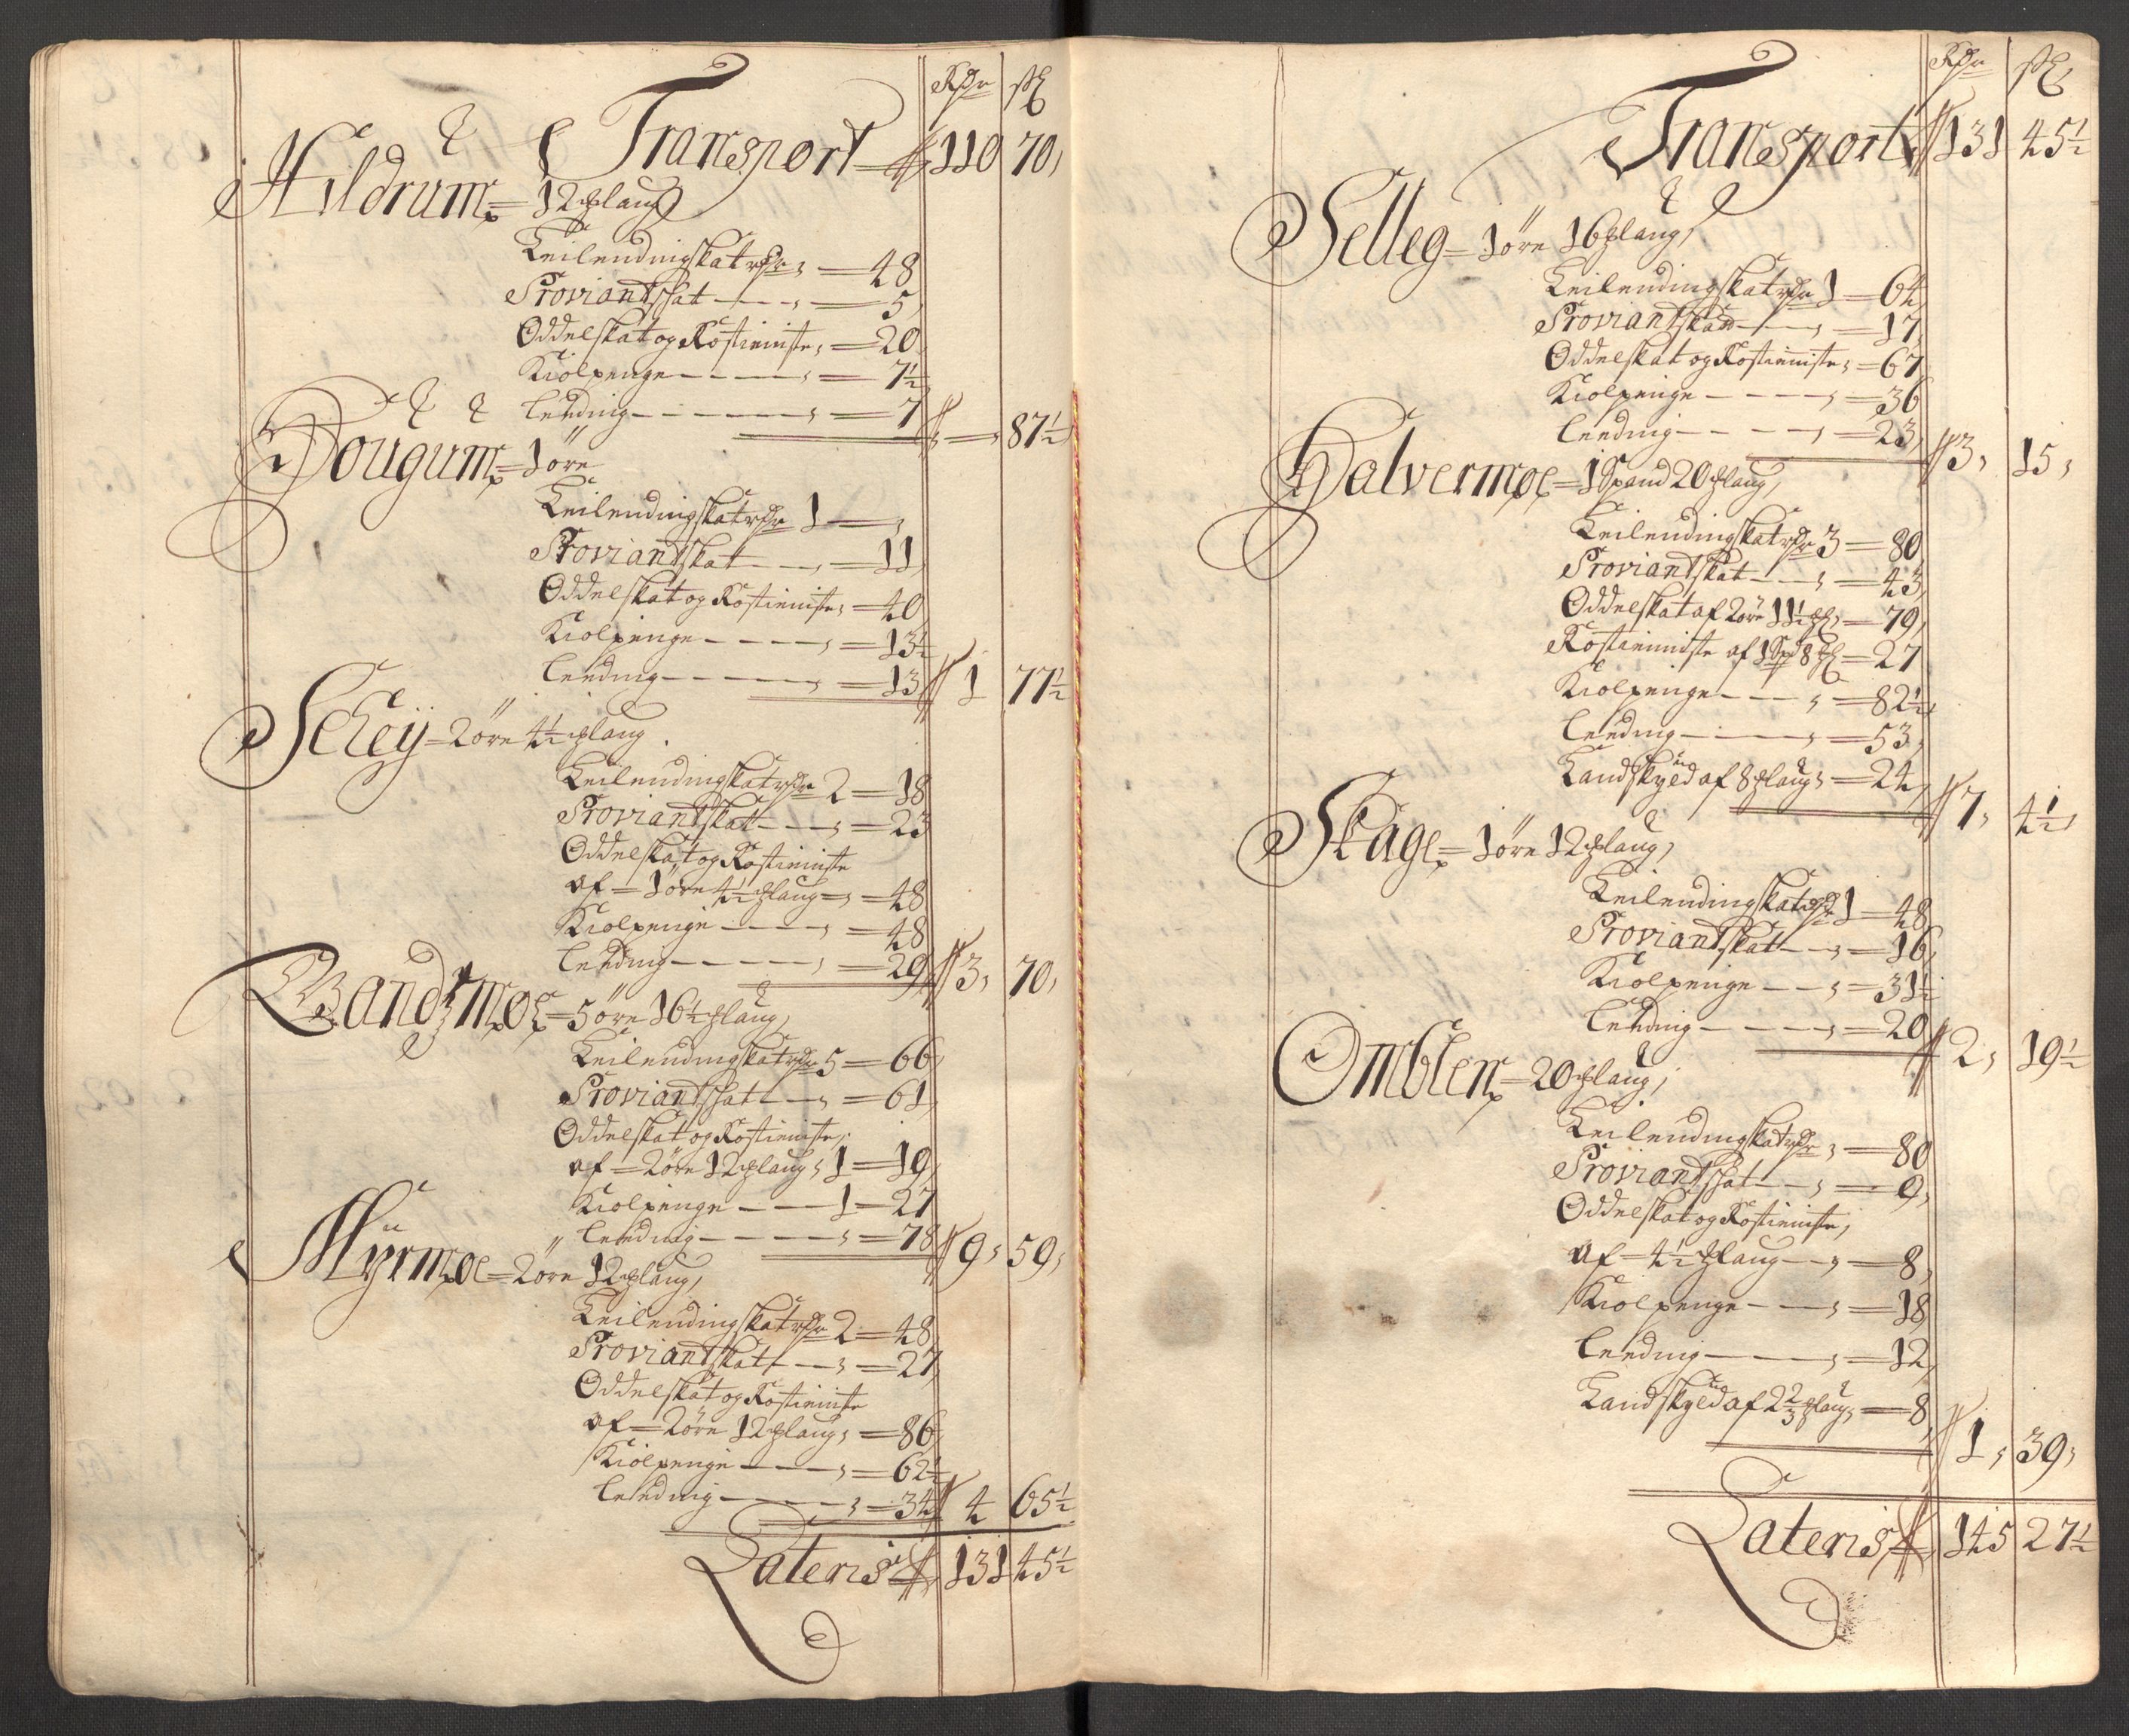 Rdr ß
Transport 110 70
Hildrum = 12 Mlaug
Leilendingskat rdr , — 48
Proviantskat - - - , — 5
Oddelskat og Rostieniste , = 20
Kiolpenge - - - - , = 7½
Leeding - - - - - , = 7 , — , 87½
Dougum = 1 øre
Leilendingskat rdr 1 — ,
Proviantskat - - , = 11
Oddelskat og Rostieniste , = 40
Kiolpenge - - - - , = 13½
Leeding - - - - - , = 13 1 77½
Schey = 2 øre 4½ Mlaug
Leilendingskat rdr 2 — 18
Proviantskat - - - , = 23
Oddelskat og Rostieniste
af = 1 øre 4½ Mlaug = , = 48
Kiolpenge - - - - , = 48
Leeding - - - - - , = 29 3, 70,
Wandzmoe = 5 øre 16½ Mlaug
Leilendingskat rdr 5 = 66
Proviantskat - - , = 61
Oddelskat og Rostieniste,
af = 2 øre 12 Mlaug , 1 = 19
Kiolpenge - - - 1 = 27
Leeding - - - - - , = 78 9, 59,
Myrmoe = 2 øre 12 Mlaug,
Leilendingskat rdr 2 = 48
Proviantskat - - , = 27
Oddelskat og Rostieniste
af = 2 øre 12 Mlaug , = 86
Kiolpenge - - - - , = 62½
Leeding - - - - , = 34 4 65½
Lateris 131 45½
Rdr ß
Transport 131 45½
Selleg = 1 øre 16 Mlaug,
Leilendingskat rdr 1 = 64
Proviantskat - - , = 17
Oddelskat og Rostieniste , = 67
Kiolpenge - - - - , = 36
Leeding - - - - - , = 23 3, 15,
Halvermoe = 1 Spand 20 Mlaug,
Leilendingskat rdr 3 = 80
Proviantskat - - , = 43
Oddelskat af 2 øre 11½ Ml , = 79
Rostieniste af 1 Spd 8 Ml = 27
Kiolpenge - - - , = 82½
Leeding - - - - , = 53
Landskyld af 8 Mlaug , = 24 7, 4½
Skage = 1 øre 12 Mlaug,
Leilendingskat rdr 1 = 48
Proviantskat - - , = 16
Kiolpenge - - - , = 31½
Leeding - - - - , = 20 2, 19½
Omblen = 20 Mlaug,
Leilendingskat rdr , = 80
Proviantskat - - , = 9,
Oddelskat og Rostieniste,
af = 4½ Mlaug - - , = 8
Kiolpenge - - - , = 18
Leeding - - - - , = 12
Landskyld af 2⅔ Mlaug , = 8 1, 39,
Lateris 145 27½